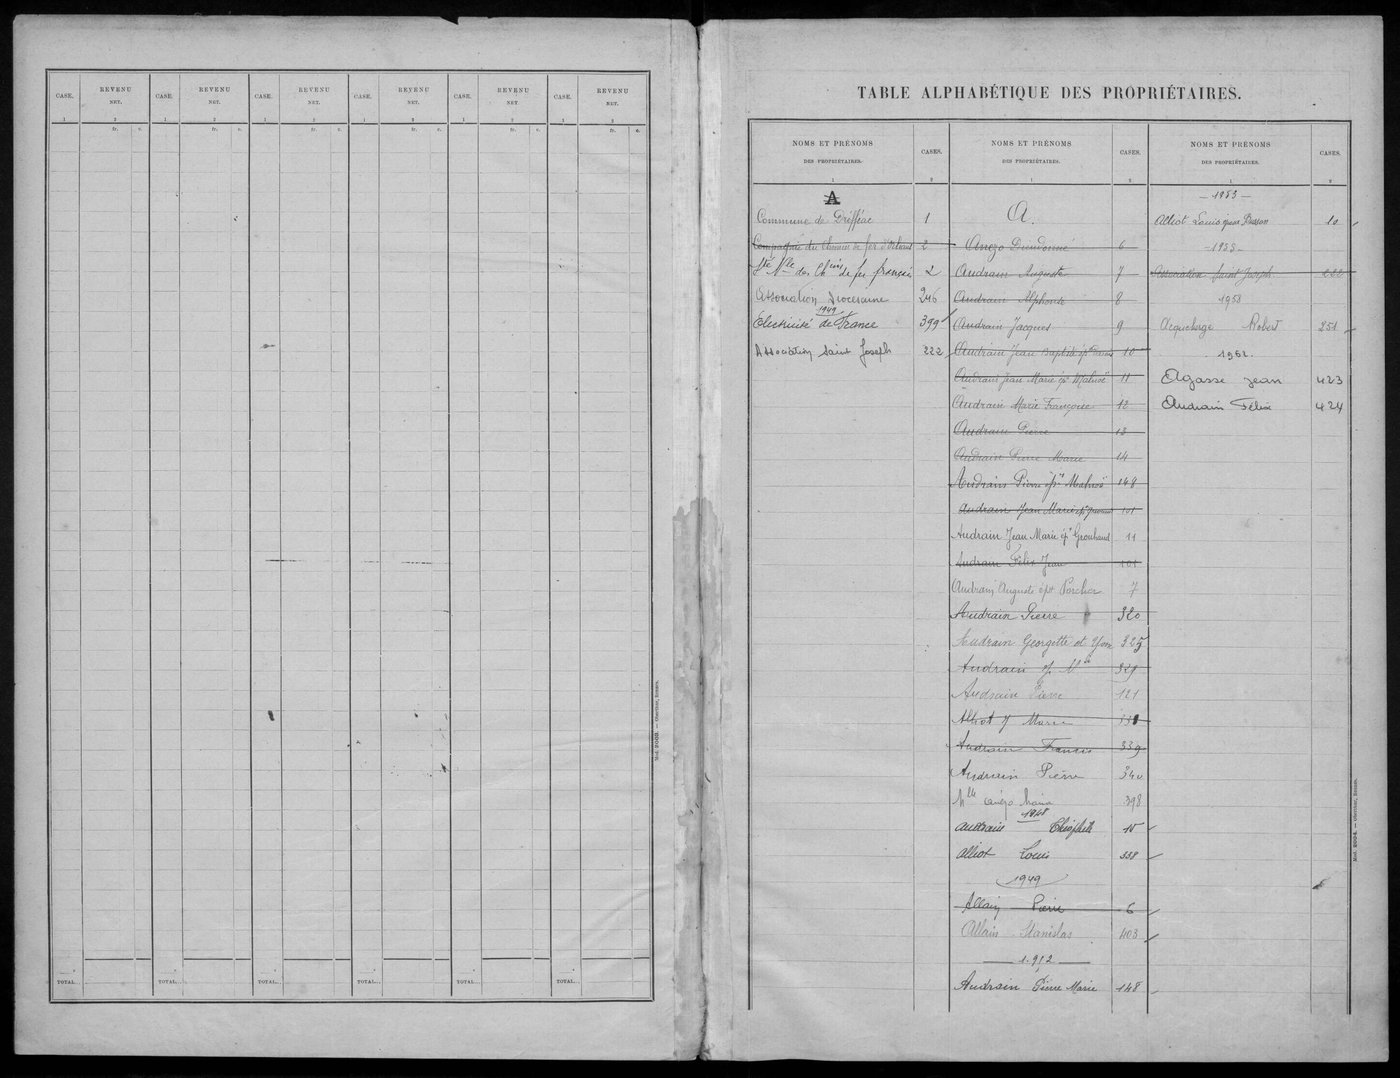 CASE. REVENU NET. CASE. REVENU NET. CASE. REVENU NET. CASE. REVENU NET. CASE. REVENU NET. CASE. REVENU NET.
1 2 1 2 1 2 1 2 1 2 1 2
fr. c. fr. c. fr. c. fr. c. fr. c. fr. c.
TOTAL... TOTAL... TOTAL... TOTAL... TOTAL... TOTAL...
Mod. 2003. — Oberthur, Rennes.
TABLE ALPHABÉTIQUE DES PROPRIÉTAIRES.
NOMS ET PRÉNOMS
DES PROPRIÉTAIRES.
CASES.
1 2
A
Commune de Drefféac 1
Compagnie du Chemin de fer d'Orléans 2
Sté Nle des Chins de fer français 2
Association Diocésaine 246
1949
Electricité de France 399
Association Saint Joseph 222
NOMS ET PRÉNOMS
DES PROPRIÉTAIRES.
CASES.
1 2
A.
Anezo Dieudonné 6
Audrain Auguste 7
Audrain Alphonse 8
Audrain Jacques 9
Audrain Jean Baptiste 10
Audrain Jean Marie ép Mahué 11
Audrain Marie Françoise 12
Audrain Pierre 13
Audrain Pierre Marie 14
Audrain Pierre Mahué 148
Audrain Jean Marie 101
Audrain Jean Marie ép Grouhand 11
Audrain Félix Jean 101
Audrain Auguste ép Porcher 7
Audrain Pierre 320
Audrain Georgette et Yvon 325
Audrain 329
Audrain Pierre 121
Alliot Marie
Audrain Francis 339
Audrain Pierre 340
Mlle Anézo Maria 398
1948
Audrain Théophile 10
Alliot Louis 338
1949
Allain Pierre 6
Allain Stanislas 403
1.912
Audrain Pierre Marie 148
NOMS ET PRÉNOMS
DES PROPRIÉTAIRES.
CASES.
1 2
— 1953 —
Alliot Louis Busson 10
— 1955 —
Association Saint Joseph 222
1958
Acquelerge Robert 251
— 1962.
Agasse Jean 423
Audrain Félix 424
Mod. 2004. — Oberthur, Rennes.